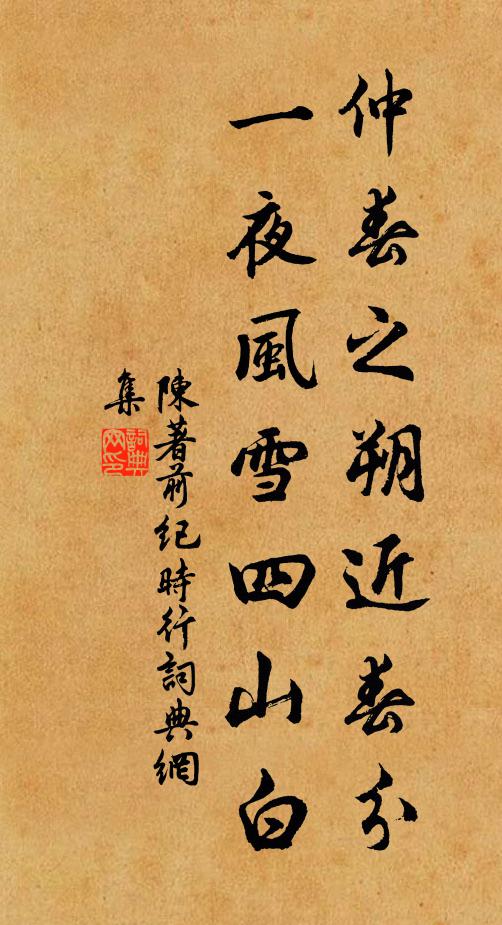 仲春之朔近春分
一夜風雪四山白
陳著前紀時行詞典網
集
詞典
网印